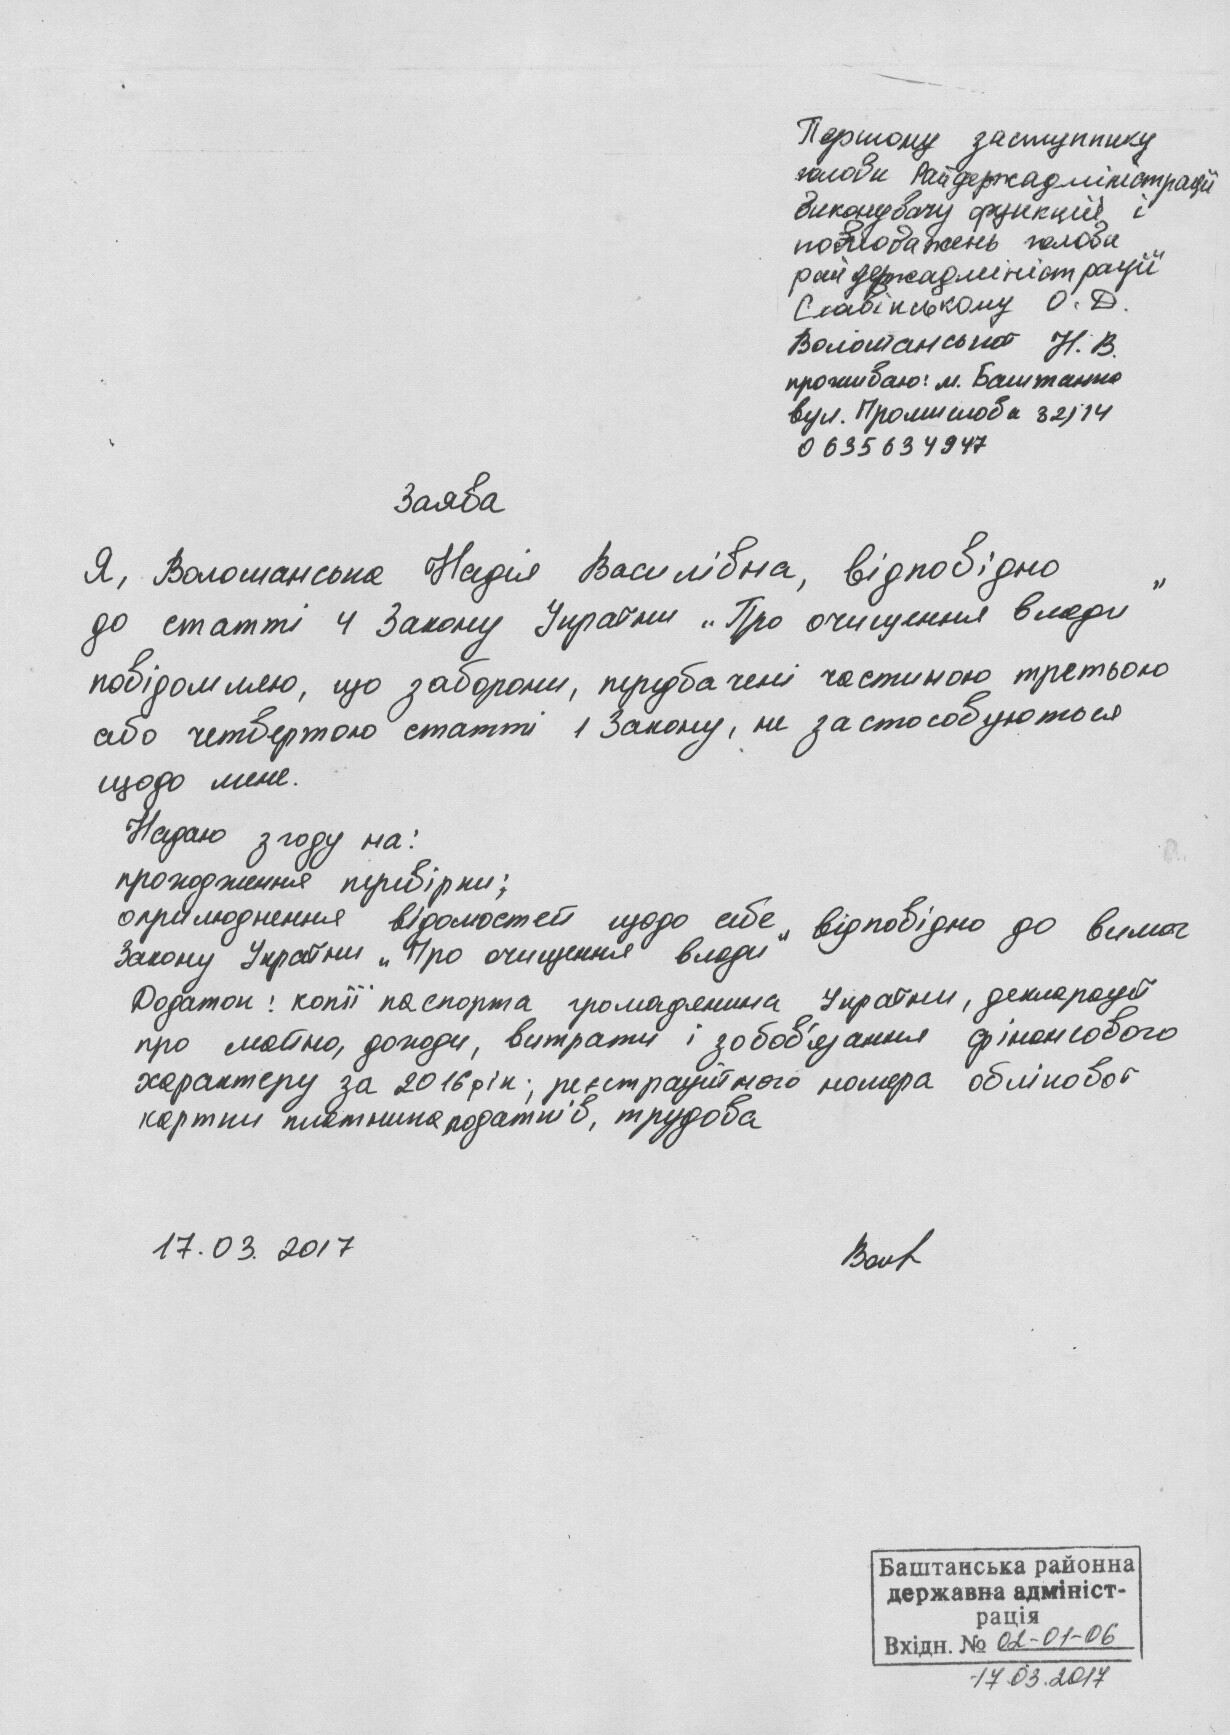 Першому заступнику
голови Райдержадміністрації
виконувачу функцій і
повноважень голови
райдержадміністрації
Славінському О. Д.
Волошанської Н. В.
проживаю: м. Баштанка
вул. Промислова 32/14
0635634947
Заява
Я, Волошанська Надія Василівна, відповідно
до статті 4 Закону України „Про очищення влади"
повідомляю, що заборони, передбачені частиною третьою
або четвертою статті 1 Закону, не застосовуються
щодо мене.
Надаю згоду на:
проходження перевірки;
оприлюднення відомостей щодо себе відповідно до вимог
Закону України „Про очищення влади"
Додаток: копії паспорта громадянина України, декларації
про майно, доходи, витрати і зобов'язання фінансового
характеру за 2016 рік; реєстраційного номера облікової
картки платника податків, трудова
17.03.2017
Баштанська районна
державна адмініст-
рація
Вхідн. № 02-01-06
17.03.2017